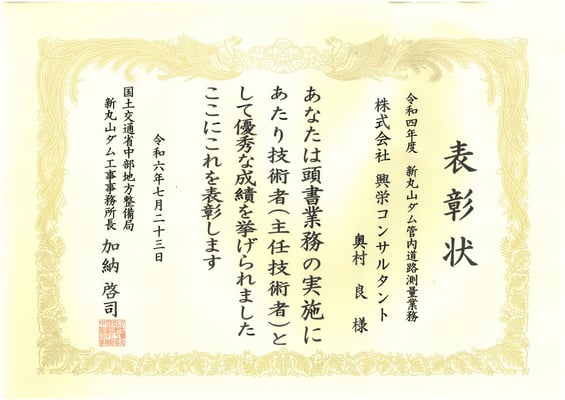 表彰状
令和四年度　新丸山ダム管内道路測量業務
株式会社　興栄コンサルタント
奥村　良　様
あなたは頭書業務の実施に
あたり技術者(主任技術者)と
して優秀な成績を挙げられました
ここにこれを表彰します
令和六年七月二十三日
国土交通省中部地方整備局
新丸山ダム工事事務所長　加納　啓司